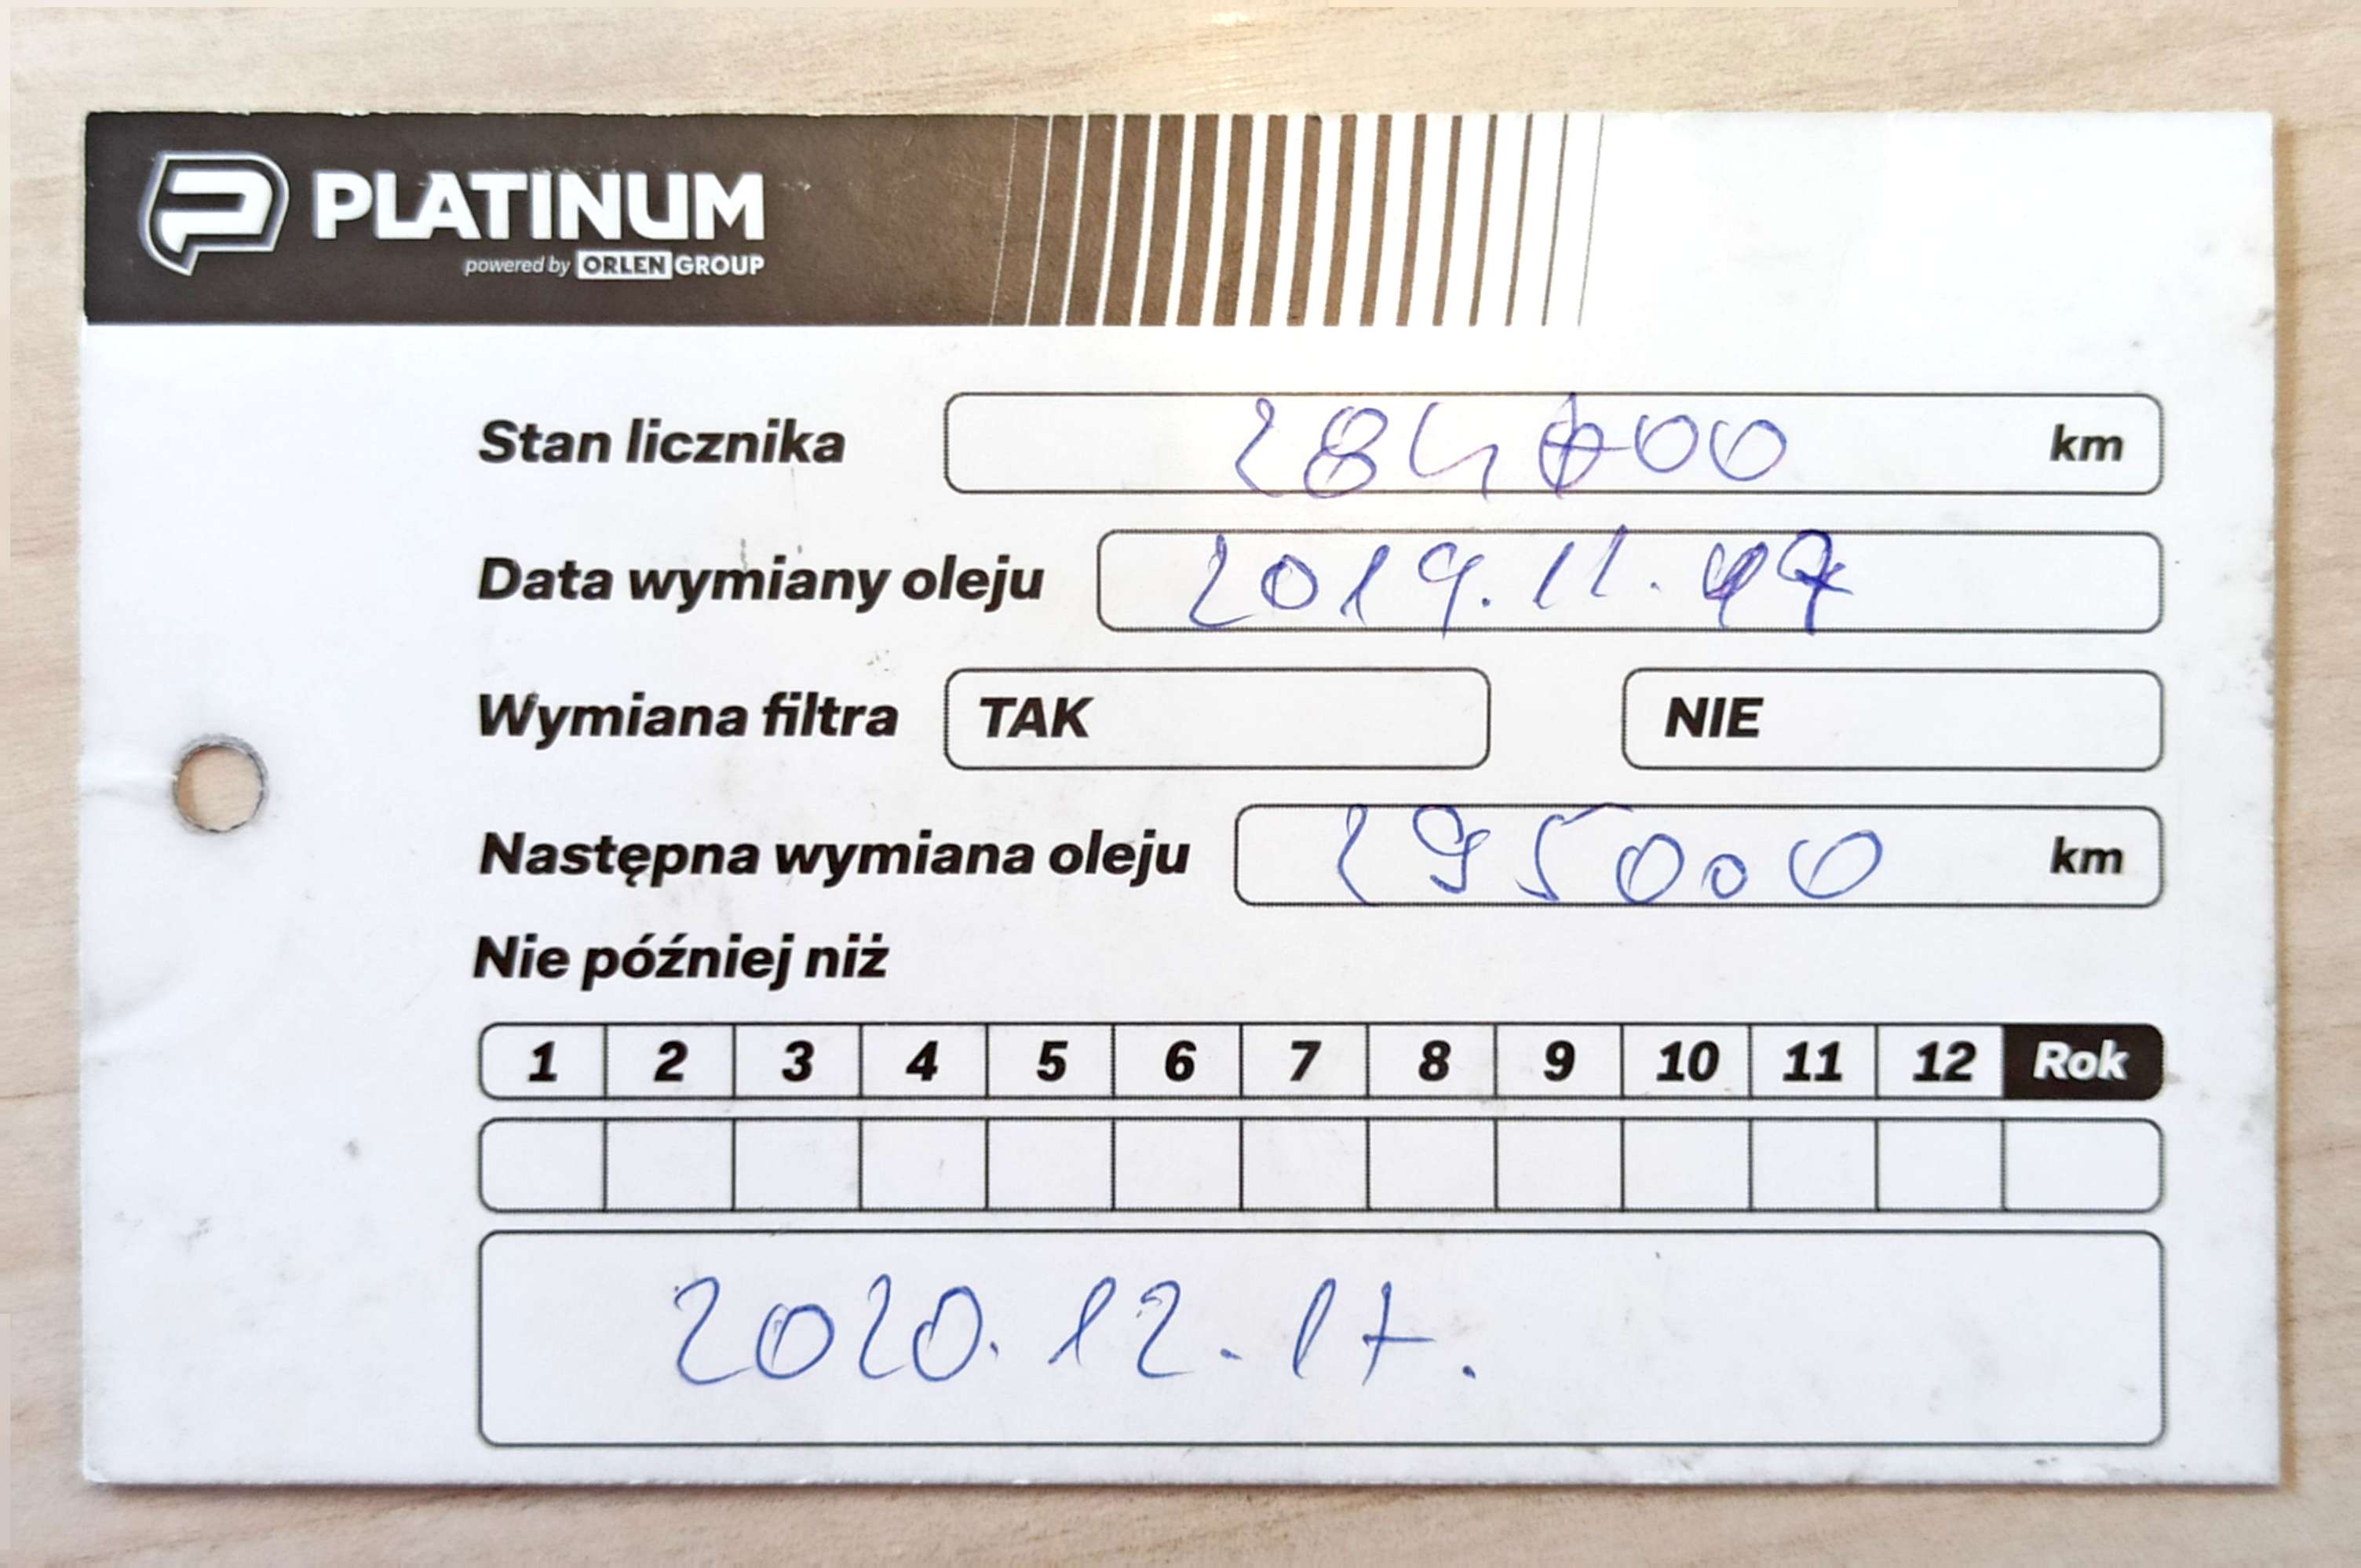 PLATINUM
powered by ORLEN GROUP
Stan licznika 284000 km
Data wymiany oleju 2019.11.
Wymiana filtra TAK NIE
Następna wymiana oleju 295000 km
Nie później niż
1 2 3 4 5 6 7 8 9 10 11 12 Rok
2020.12.17.